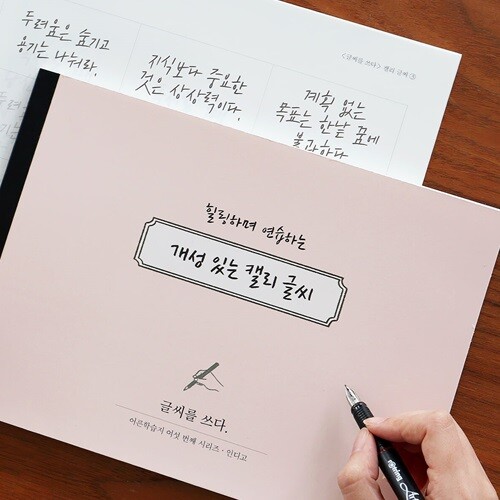 두려움은 숨기고
용기는 나눠라.
지식보다 중요한
것은 상상력이다.
<글씨를 쓰다> 캘리 글씨 ③
계획 없는
목표는 한낱 꿈에
불과하다
힐링하며 연습하는
개성 있는 캘리 글씨
글씨를 쓰다.
어른학습지 여섯 번째 시리즈 - 인디고